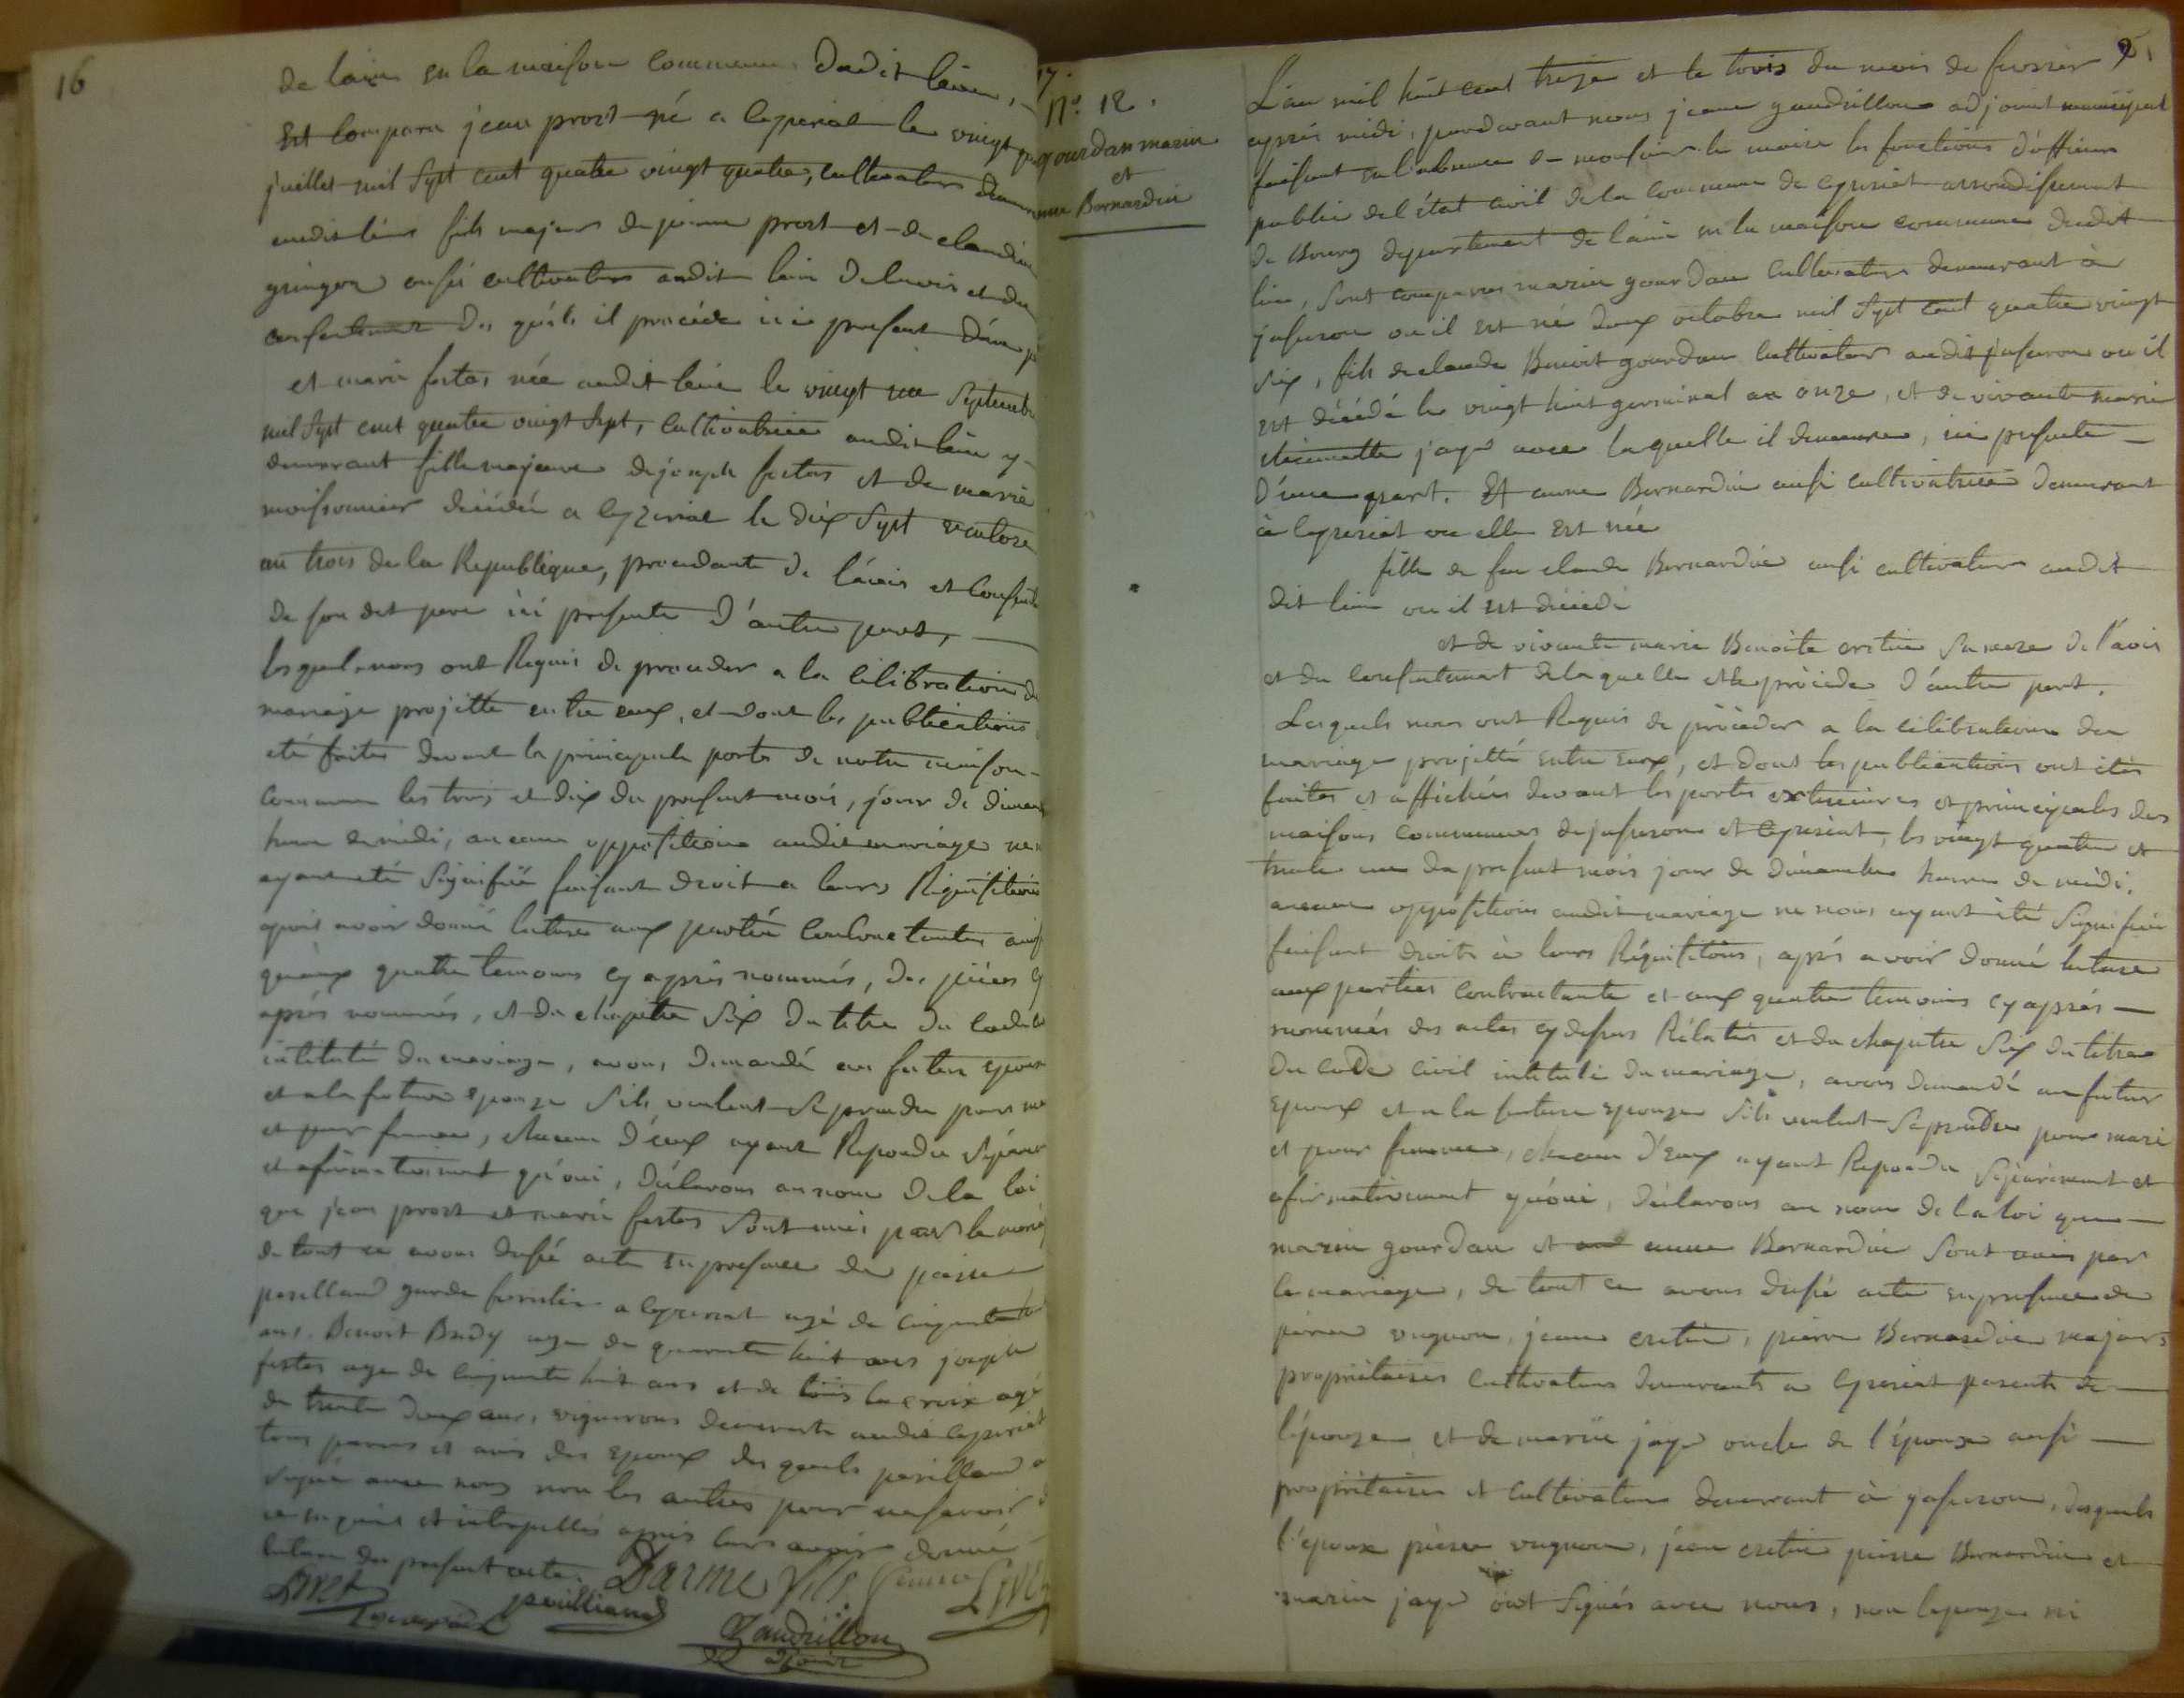 16
de lain en la maison commune dudit lieu,
Est comparu jean prost né a Ceyzeriat le vingt
juillet mil sept cent quatre vingt quatre, cultivateur
audit lieu fils majeur de prost et de claudine
aussi cultivateurs audit lieu de lavis et du
consentement des quels il procéde ici present d'une
et marie festas née audit lieu le vingt Septembre
mil sept cent quatre vingt sept, cultivatrice audit lieu y
demeurant fille majeure de joseph festas et de marie
moissonnier décédée a ceyzeriat le dix sept ventose
an trois de la Republique, procedante de l'avis et
de son dit pere ici presente d'autre part,
lesquels nous ont Requis de proceder a la célébration du
mariage projetté entre eux, et dont les publications
eté faites devant la principale porte de notre maison
commune les trois et dix du present mois, jour de
heure de midi, aucune opposition audit mariage ne
ayant eté signifiée faisant droit a leurs Réquisitions
après avoir donné lecture aux parties contractantes
qu'aux quatre temoins cy après nommés, des pièces cy
après nommés, et du chapitre six du titre du code
intitulé du mariage, avons demandé au futur epoux
et a la future epouze s'ils veulent se prendre pour
et pour femme, chacun d'eux ayant Repondu
et afirmativement qu'oui, déclarons au nom de la loi
que jean prost et marie festas sont unis par le
de tout ce avons dressé acte en presence de pierre
garde forestier a ceyzeriat agé de cinquante
ans. Benoit Brudy age de quarante huit ans joseph
festas age de cinquante huit ans et de louis lacroix agé
de trente deux ans, vignerons demeurants audit ceyzeriat
tous parens et amis des epoux des quels
signé avec nous non les autres pour ne savoir
ce enquis et interpellés après leurs avoir donné
lecture du present acte. Darme fils
Livet
Gaudrillon
adjoint
17.
N°. 12.
gourdan marin
et
Bernardin
L'an mil huit cent treize et le trois du mois de fevrier
après midi, pardevant nous jean gaudrillon adjoint municipal
faisant en l'absence de monsieur le maire les fonctions d'officier
public de l'état civil de la commune de ceyzeriat arrondissement
de Bourg departement de l'ain en la maison commune dudit
lieu, sont comparus marin gourdan cultivateur demeurant à
jasseron ou il est né deux octobre mil sept cent quatre vingt
six, fils de claude Benoit gourdan cultivateur audit jasseron ou il
est décédé le vingt huit germinal an onze, et de vivante marie
jaye avec laquelle il demeure, ici presente
d'une part. Et anne Bernardin aussi cultivatrice demeurant
à ceyzeriat ou elle est née
fille de feu claude Bernardin aussi cultivateur audit
dit lieu ou il est décédé
et de vivante marie Benoite cretin sa mere de l'avis
et du consentement de laquelle elle procéde d'autre part.
Lesquels nous ont Requis de procéder a la célébration du
mariage projetté entre eux, et dont les publications ont étés
faites et affichées devant les portes exterieures et principales des
maisons communes de jasseron et ceyzeriat, les vingt quatre et
trente un du present mois jour de dimanche heure de midi.
aucune opposition audit mariage ne nous ayant été signifiée
faisant droit à leurs Réquisitions, après avoir donné lecture
aux parties contractantes et aux quatre temoins cy après
nommés des actes cy dessus Rélatés et du chapitre six du titre
du code civil intitulé du mariage, avons demandé au futur
epoux et a la future epouze s'ils veulent se prendre pour mari
et pour femme, chacun d'eux ayant Repondu séparément et
afirmativement qu'oui, déclarons au nom de la loi que
marin gourdan et anne Bernardin sont unis par
le mariage, de tout ce avons dressé acte en presence de
pierre vugnon, jean cretin, pierre Bernardin majeurs
propriétaires cultivateurs demeurants a ceyzeriat parents de
l'épouze et de marin jaye oncle de l'époux aussi
propriétaire et cultivateur demeurant à jasseron, desquels
l'époux pierre vugnon, jean cretin pierre Bernardin et
marin jaye ont signés avec nous, non lepouze ni